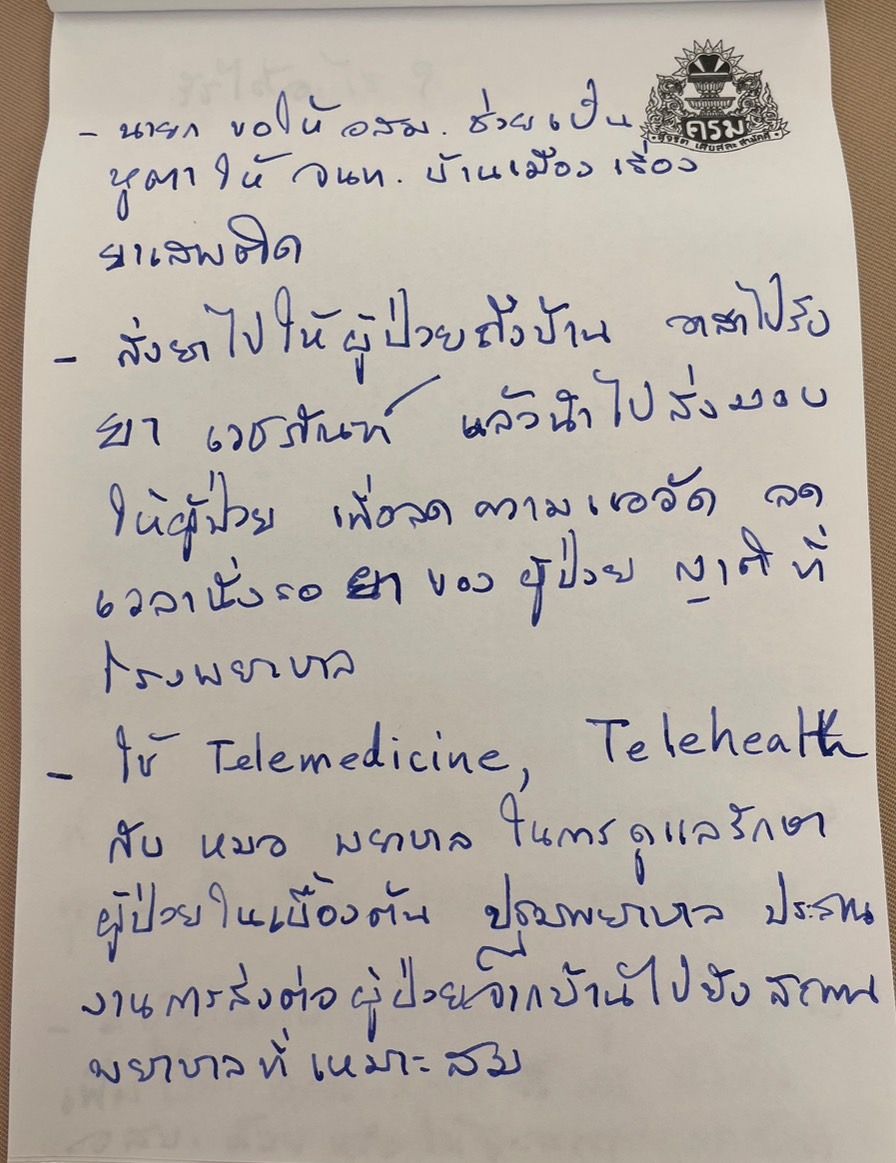 ครม
- นายก ขอให้ อสม. ช่วยเป็น
หูตา ให้ จนท. บ้านเมือง เรื่อง
ยาเสพติด
- ส่งยาไปให้ผู้ป่วยถึงบ้าน อาสาไปรับ
ยา เวชภัณฑ์ แล้วนำไปส่งมอบ
ให้ผู้ป่วย เพื่อลด ความแออัด ลด
เวลานั่งรอ ยา ของ ผู้ป่วย ญาติ ที่
โรงพยาบาล
- ใช้ Telemedicine, Telehealth
กับ หมอ พยาบาล ในการ ดูแลรักษา
ผู้ป่วยในเบื้องต้น ปฐมพยาบาล ประสาน
งานการส่งต่อ ผู้ป่วยจากบ้านไปยัง สถาน
พยาบาลที่ เหมาะสม